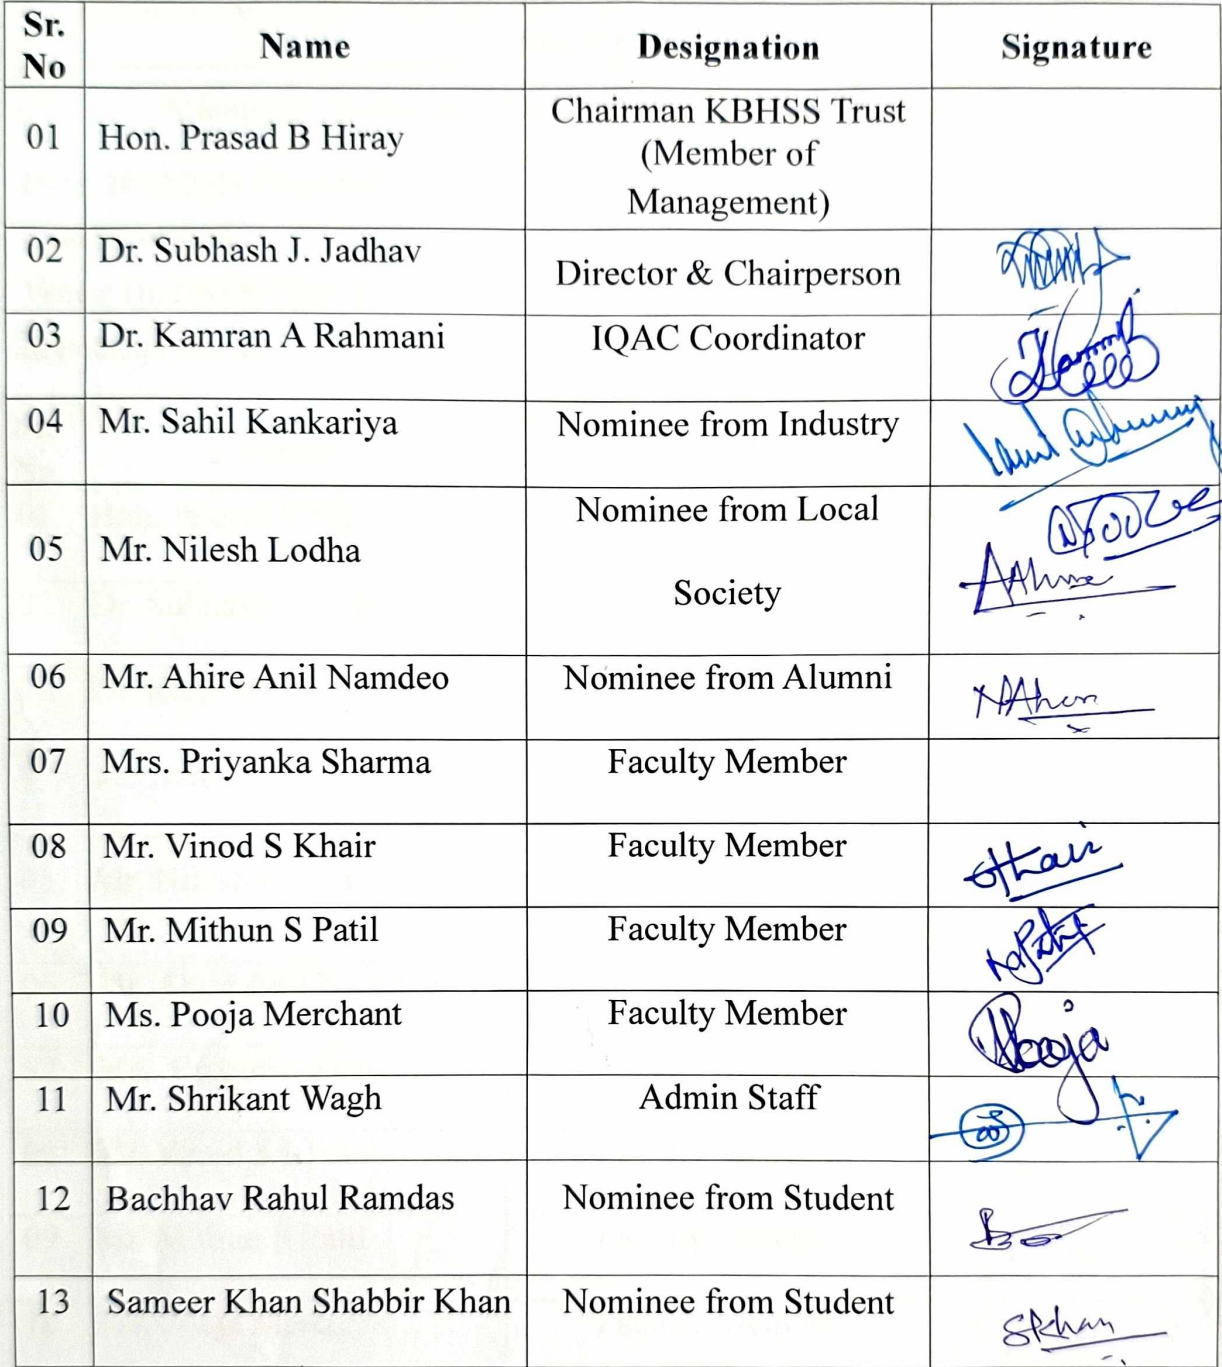 Sr. No Name Designation Signature
01 Hon. Prasad B Hiray Chairman KBHSS Trust
(Member of
Management)
02 Dr. Subhash J. Jadhav Director & Chairperson
03 Dr. Kamran A Rahmani IQAC Coordinator
04 Mr. Sahil Kankariya Nominee from Industry
05 Mr. Nilesh Lodha Nominee from Local
Society
06 Mr. Ahire Anil Namdeo Nominee from Alumni
07 Mrs. Priyanka Sharma Faculty Member
08 Mr. Vinod S Khair Faculty Member
09 Mr. Mithun S Patil Faculty Member
10 Ms. Pooja Merchant Faculty Member Pooja
11 Mr. Shrikant Wagh Admin Staff
12 Bachhav Rahul Ramdas Nominee from Student
13 Sameer Khan Shabbir Khan Nominee from Student SRKhan